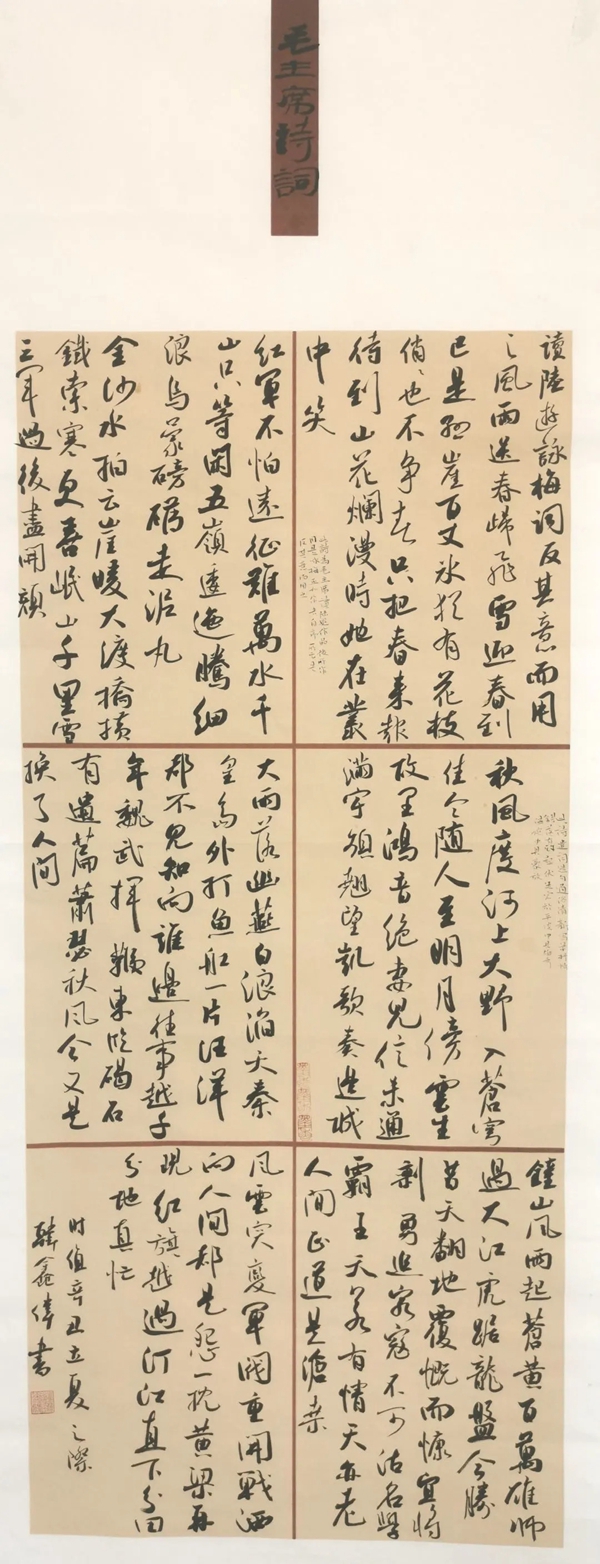 毛主席詩詞
讀陸游詠梅詞反其意而用
之風雨送春歸飛雪迎春到
已是懸崖百丈冰猶有花枝
俏俏也不争春只把春来報
待到山花爛漫時她在叢
中笑
紅軍不怕遠征難萬水千
山只等閑五嶺逶迤騰細
浪烏蒙磅礴走泥丸
金沙水拍云崖暖大渡橋横
鐵索寒更喜岷山千里雪
三軍過後盡開顔
秋風度河上大野入蒼穹
佳令随人至明月傍雲生
故里鴻音絶妻兒信未通
滿宇頻翹望凱歌奏邊城
大雨落幽燕白浪滔天秦
皇島外打魚船一片汪洋
都不見知向誰邊往事越千
年魏武揮鞭東臨碣石
有遺篇蕭瑟秋風今又是
换了人間
鐘山風雨起蒼黄百萬雄師
過大江虎踞龍盤今勝
昔天翻地覆慨而慷宜將
剩勇追窮寇不可沽名學
霸王天若有情天亦老
人間正道是滄桑
風雲突變軍閥重開戰洒
向人間都是怨一枕黄粱再
現紅旗越過汀江直下分田
分地真忙
时值辛丑立夏之際
韓鑫偉書